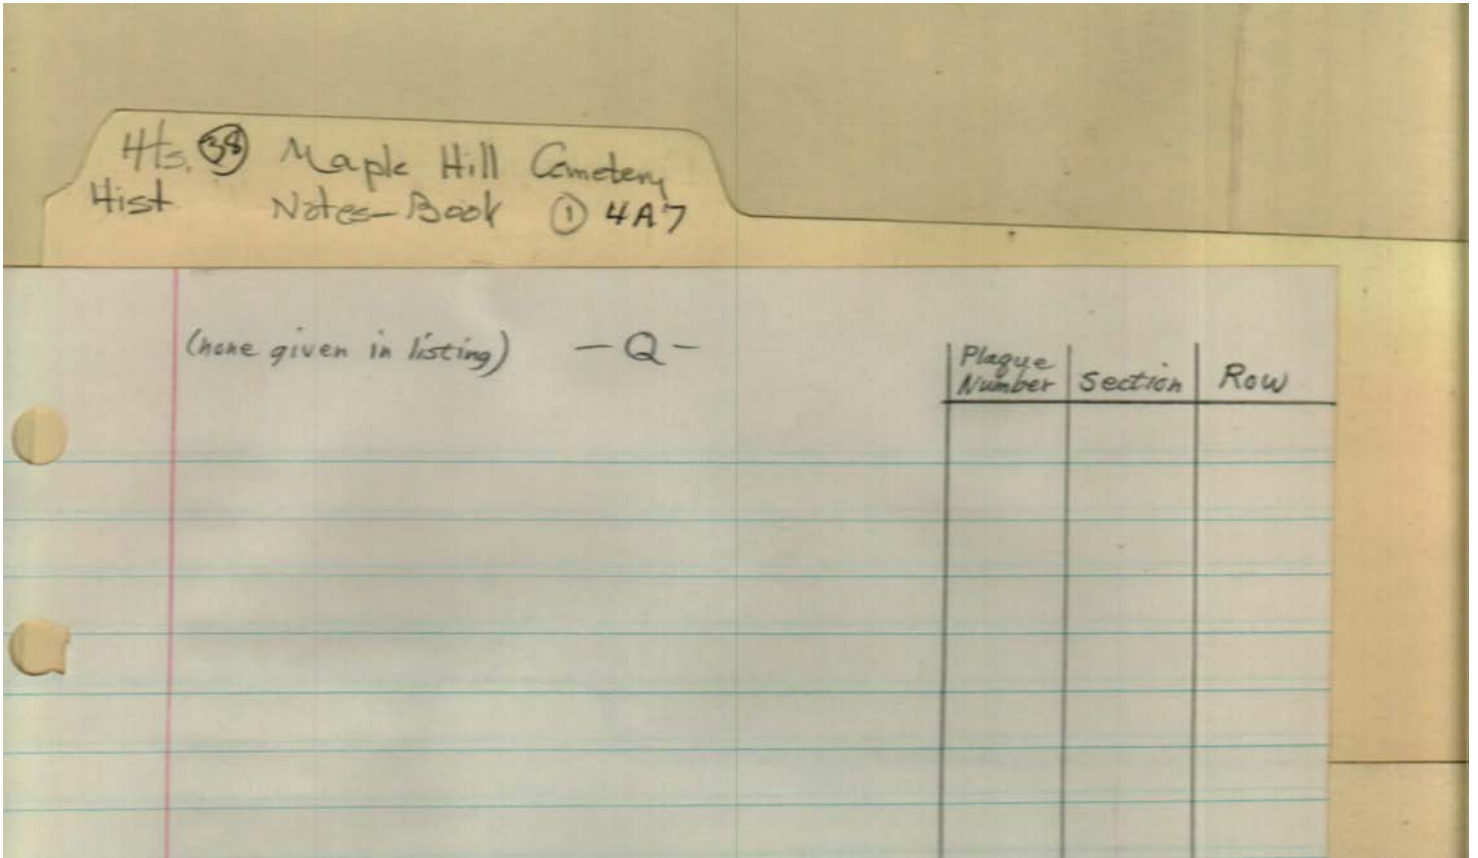 Hts. 38 Maple Hill Cemetery
Hist Notes-Book 1 4A7
(none given in listing) -Q-
Plaque Number Section Row